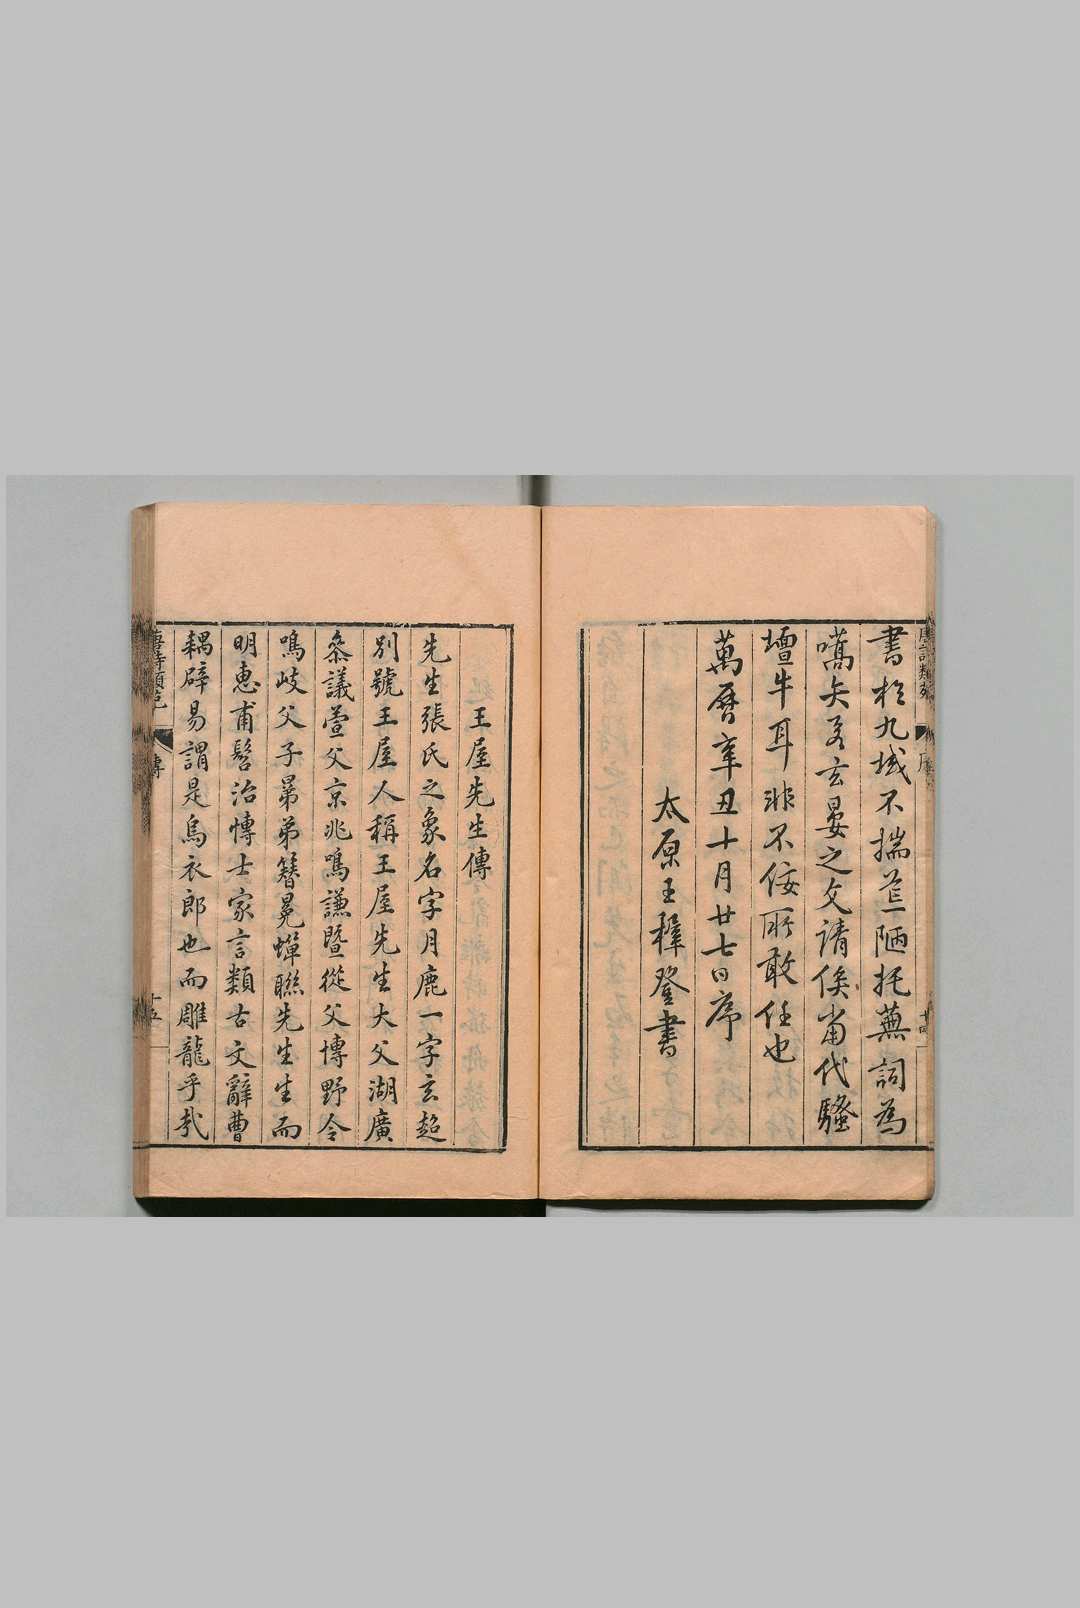 書於九域不揣菲陋托蕪詞為
嚆矢若玄晏之文請俟當代騷
壇牛耳非不佞所敢任也
萬曆辛丑十月廿七日序
太原王穉登書
王屋先生傳
先生張氏之象名字月鹿一字玄超
別號王屋人稱王屋先生大父湖廣
叅議萱父京兆鳴謙暨從父博野令
鳴岐父子晜弟簪冕蟬聯先生生而
明惠甫髫治博士家言類古文辭曹
耦辟易謂是烏衣郎也而雕龍乎哉
唐詩類苑
傳
十五